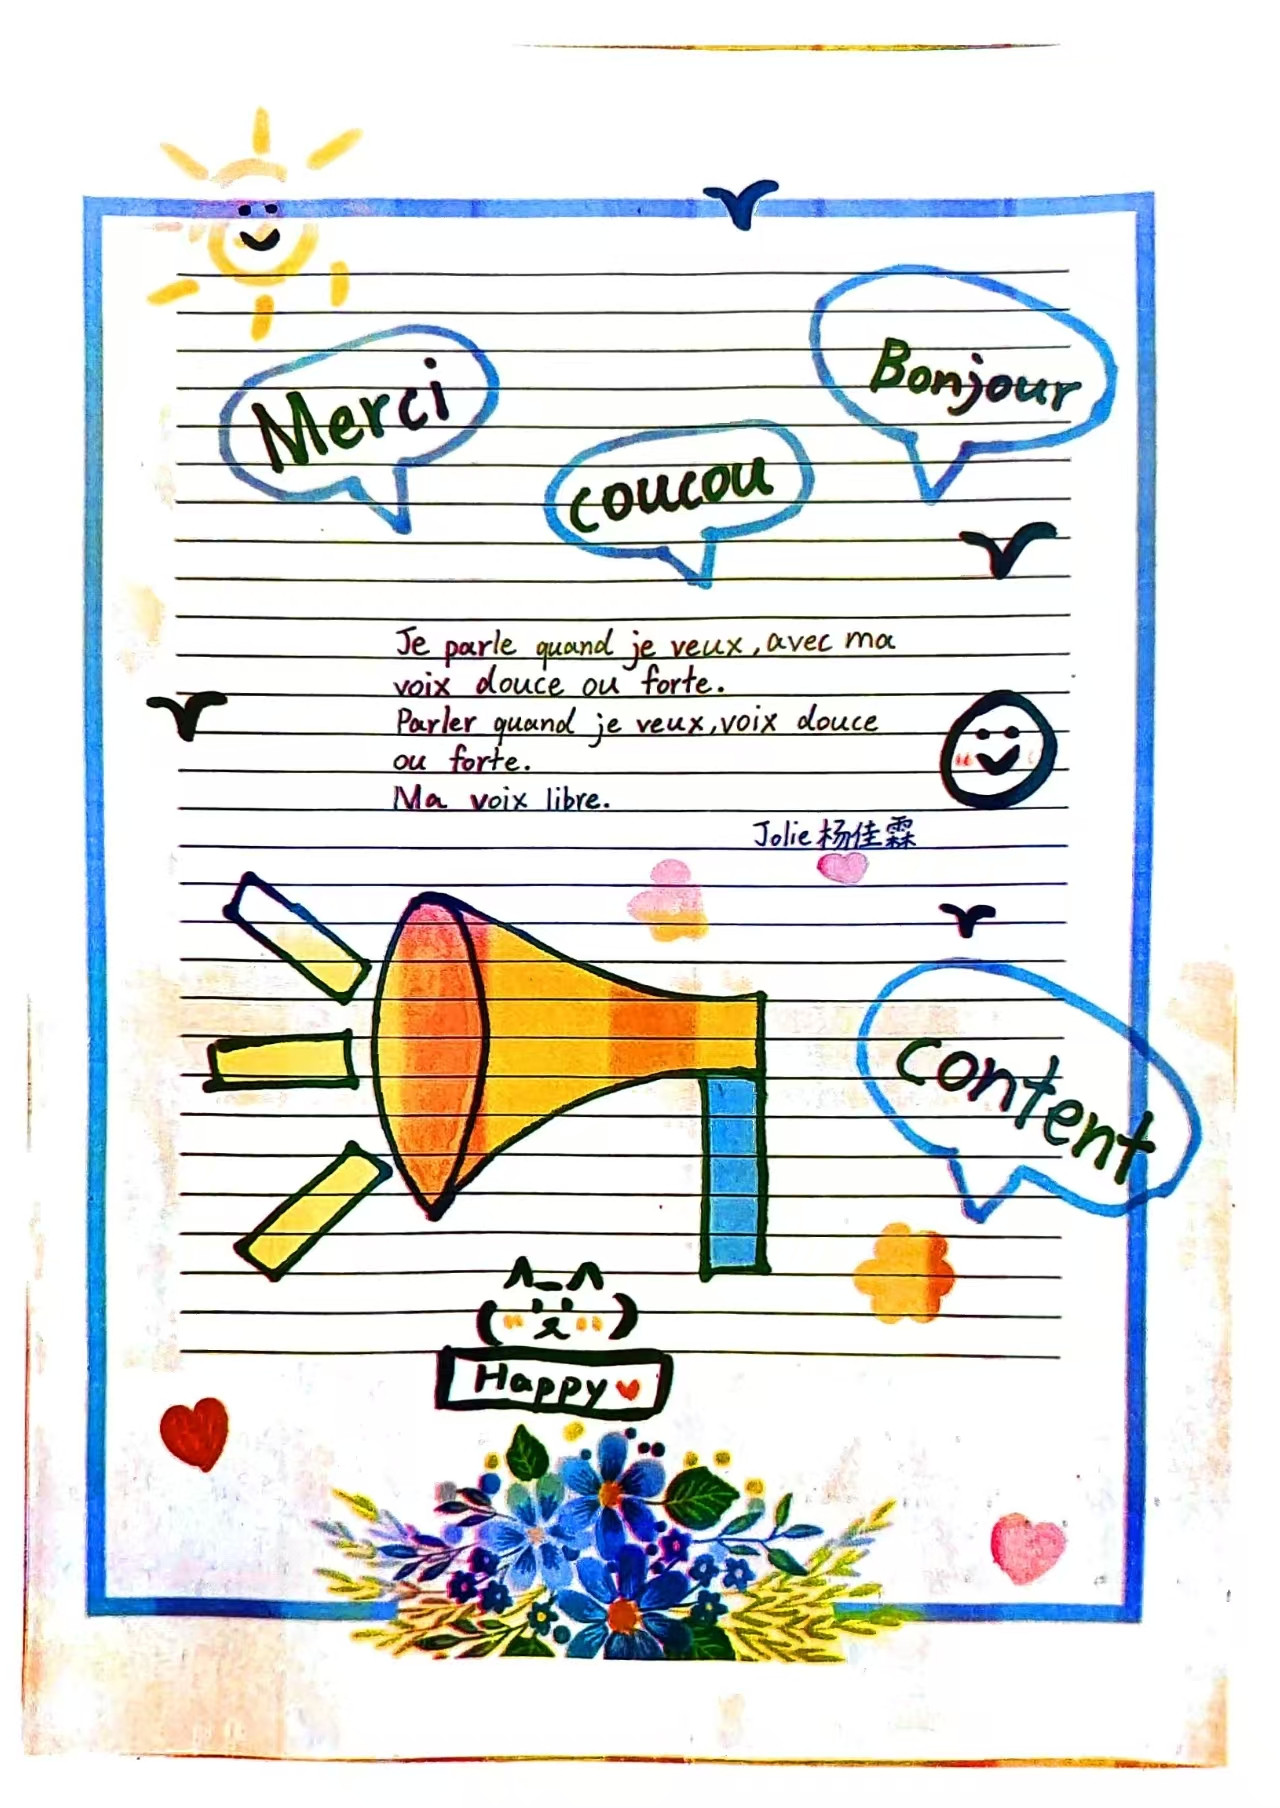 Merci
Bonjour
coucou
Je parle quand je veux, avec ma
voix douce ou forte.
Parler quand je veux, voix douce
ou forte.
Ma voix libre.
Jolie 杨佳霖
content
Happy